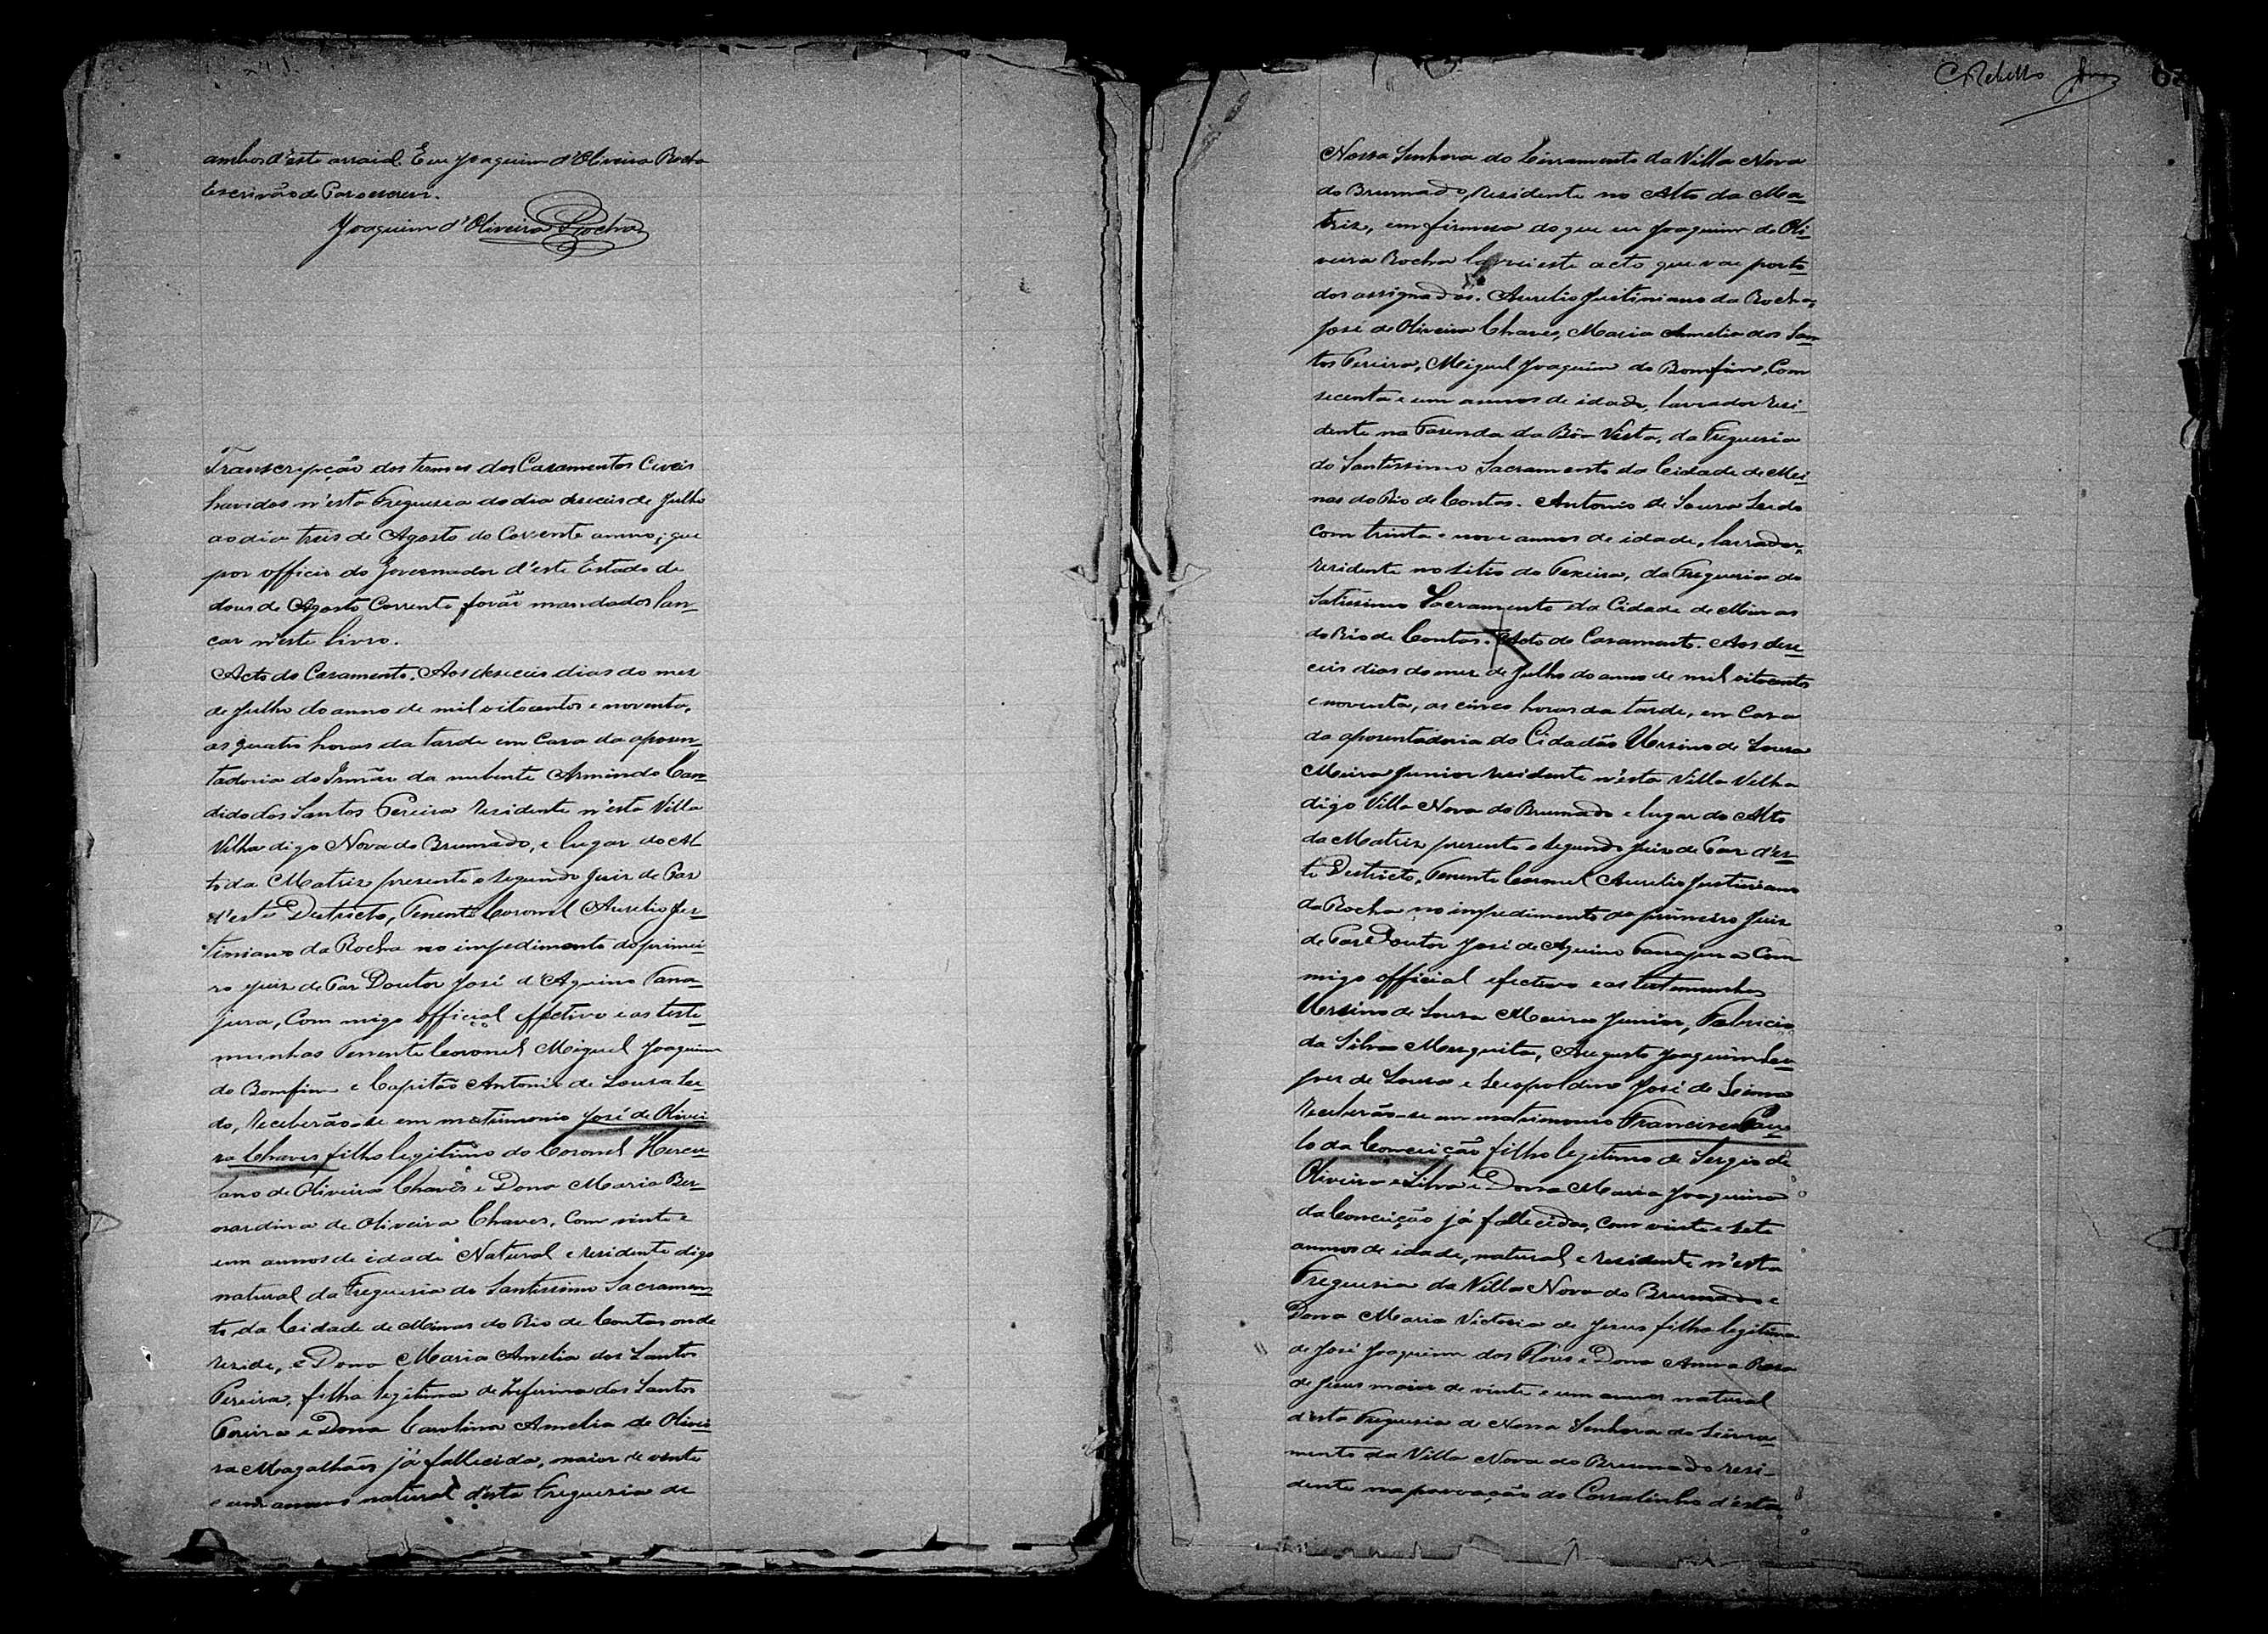 ambos d'este arraial. E eu Joaquim d'Oliveira Rocha
Escrivão de Paz escrevi.
Joaquim d'Oliveira Rocha
Transcripção dos termos dos Casamentos Civeis
havidos n'esta Freguesia do dia deseceis de Julho
ao dia treis de Agosto do Corrente anno; que
por officio do Governador d'este Estado de
dous de Agosto Corrente forão mandados lan-
çar n'este livro.
Acto do Casamento. Aos deseceis dias do mez
de Julho do anno de mil oitocentos e noventa,
as quatro horas da tarde em Casa da aposen-
tadoria do Irmão da nubente Armindo Can-
dido dos Santos Pereira residente n'esta Villa
Velha digo Nova do Brumado, e lugar do Al
to da Matriz presente o segundo Juiz de Paz
d'este Destricto, Tenente Coronel Aurelio Jus-
tiniano da Rocha no impedimento do primei-
ro Juiz de Paz Doutor José d'Aquino Tana-
jura, Com migo official effectivo e as teste-
munhas Tenente Coronel Miguel Joaquim
do Bomfim e Capitão Antonio de Sousa Le-
do, receberão-se em matrimonio José de Olivei-
ra Chaves filho legitimo do Coronel Hercu-
lano de Oliveira Chaves e Dona Maria Ber-
nardina de Oliveira Chaves, Com vinte e
um annos de idade Natural e residente digo
natural da Freguesia do Santissimo Sacramen-
to da Cidade de Minas do Rio de Contas onde
reside, e Dona Maria Amelia dos Santos
Pereira, filha legitima de Zeferino dos Santos
Pereira e Dona Carolina Amelia de Olivei-
ra Magalhães já fallecida, maior de vinte
e um annos natural d'esta Freguesia de
CRebello
Nossa Senhora do Livramento da Villa Nova
do Brumado, residente no Alto da Ma-
triz, em firmesa do que eu Joaquim de Oli-
veira Rocha lavrei este acto que vae por to-
dos assignados. Aurelio Justiniano da Rocha,
José de Oliveira Chaves, Maria Amelia dos San-
tos Pereira, Miguel Joaquim do Bomfim, Com
secenta e um annos de idade, lavrador resi-
dente na Fasenda da Bôa Vista, da Freguesia
do Santissimo Sacramento da Cidade de Mei-
nas do Rio de Contas. Antonio de Sousa Ledo
Com trinta e nove annos de idade, lavrador,
residente no sitio do Teixeira, da Freguesia do
Satissimo Sacramento da Cidade de Minas
do Rio de Contas. Acto do Casamento. Aos dese-
ceis dias do mez de Julho do anno de mil oitocentos
e noventa, as cinco horas da tarde, em Casa
da aposentadoria do Cidadão Ursino de Sousa
Meira Junior residente n'esta Villa Velha
digo Villa Nova do Brumado e lugar do Alto
da Matriz presente o segundo Juiz de Paz d'es-
te Destricto, Tenente Coronel Aurelio Justiniano
da Rocha no impedimento do primeiro Juiz
de Paz Doutor José de Aquino Tanajura Com
migo official efectivo e as testemunhas
Ursino de Sousa Meira Junior, Fabricio
da Silva Mesquita, Augusto Joaquim
de Sousa e Leopoldino José de
Receberão-se em matrimonio Francisco Pau-
lo da Conceição filho legitimo de Sergio de
Oliveira e Silva e Dona Maria Joaquina
da Conceição já fallecidos, Com vinte e sete
annos de idade, natural e residente n'esta
Freguesia da Villa Nova do Brumado e
Dona Maria Victoria de Jesus filha legitima
de José Joaquim das Flores e Dona Anna Rosa
de Jesus maior de vinte e um annos natural
d'esta Freguesia de Nossa Senhora do Livra-
mento da Villa Nova do Brumado resi-
dente na povoação do Corralinho d'esta